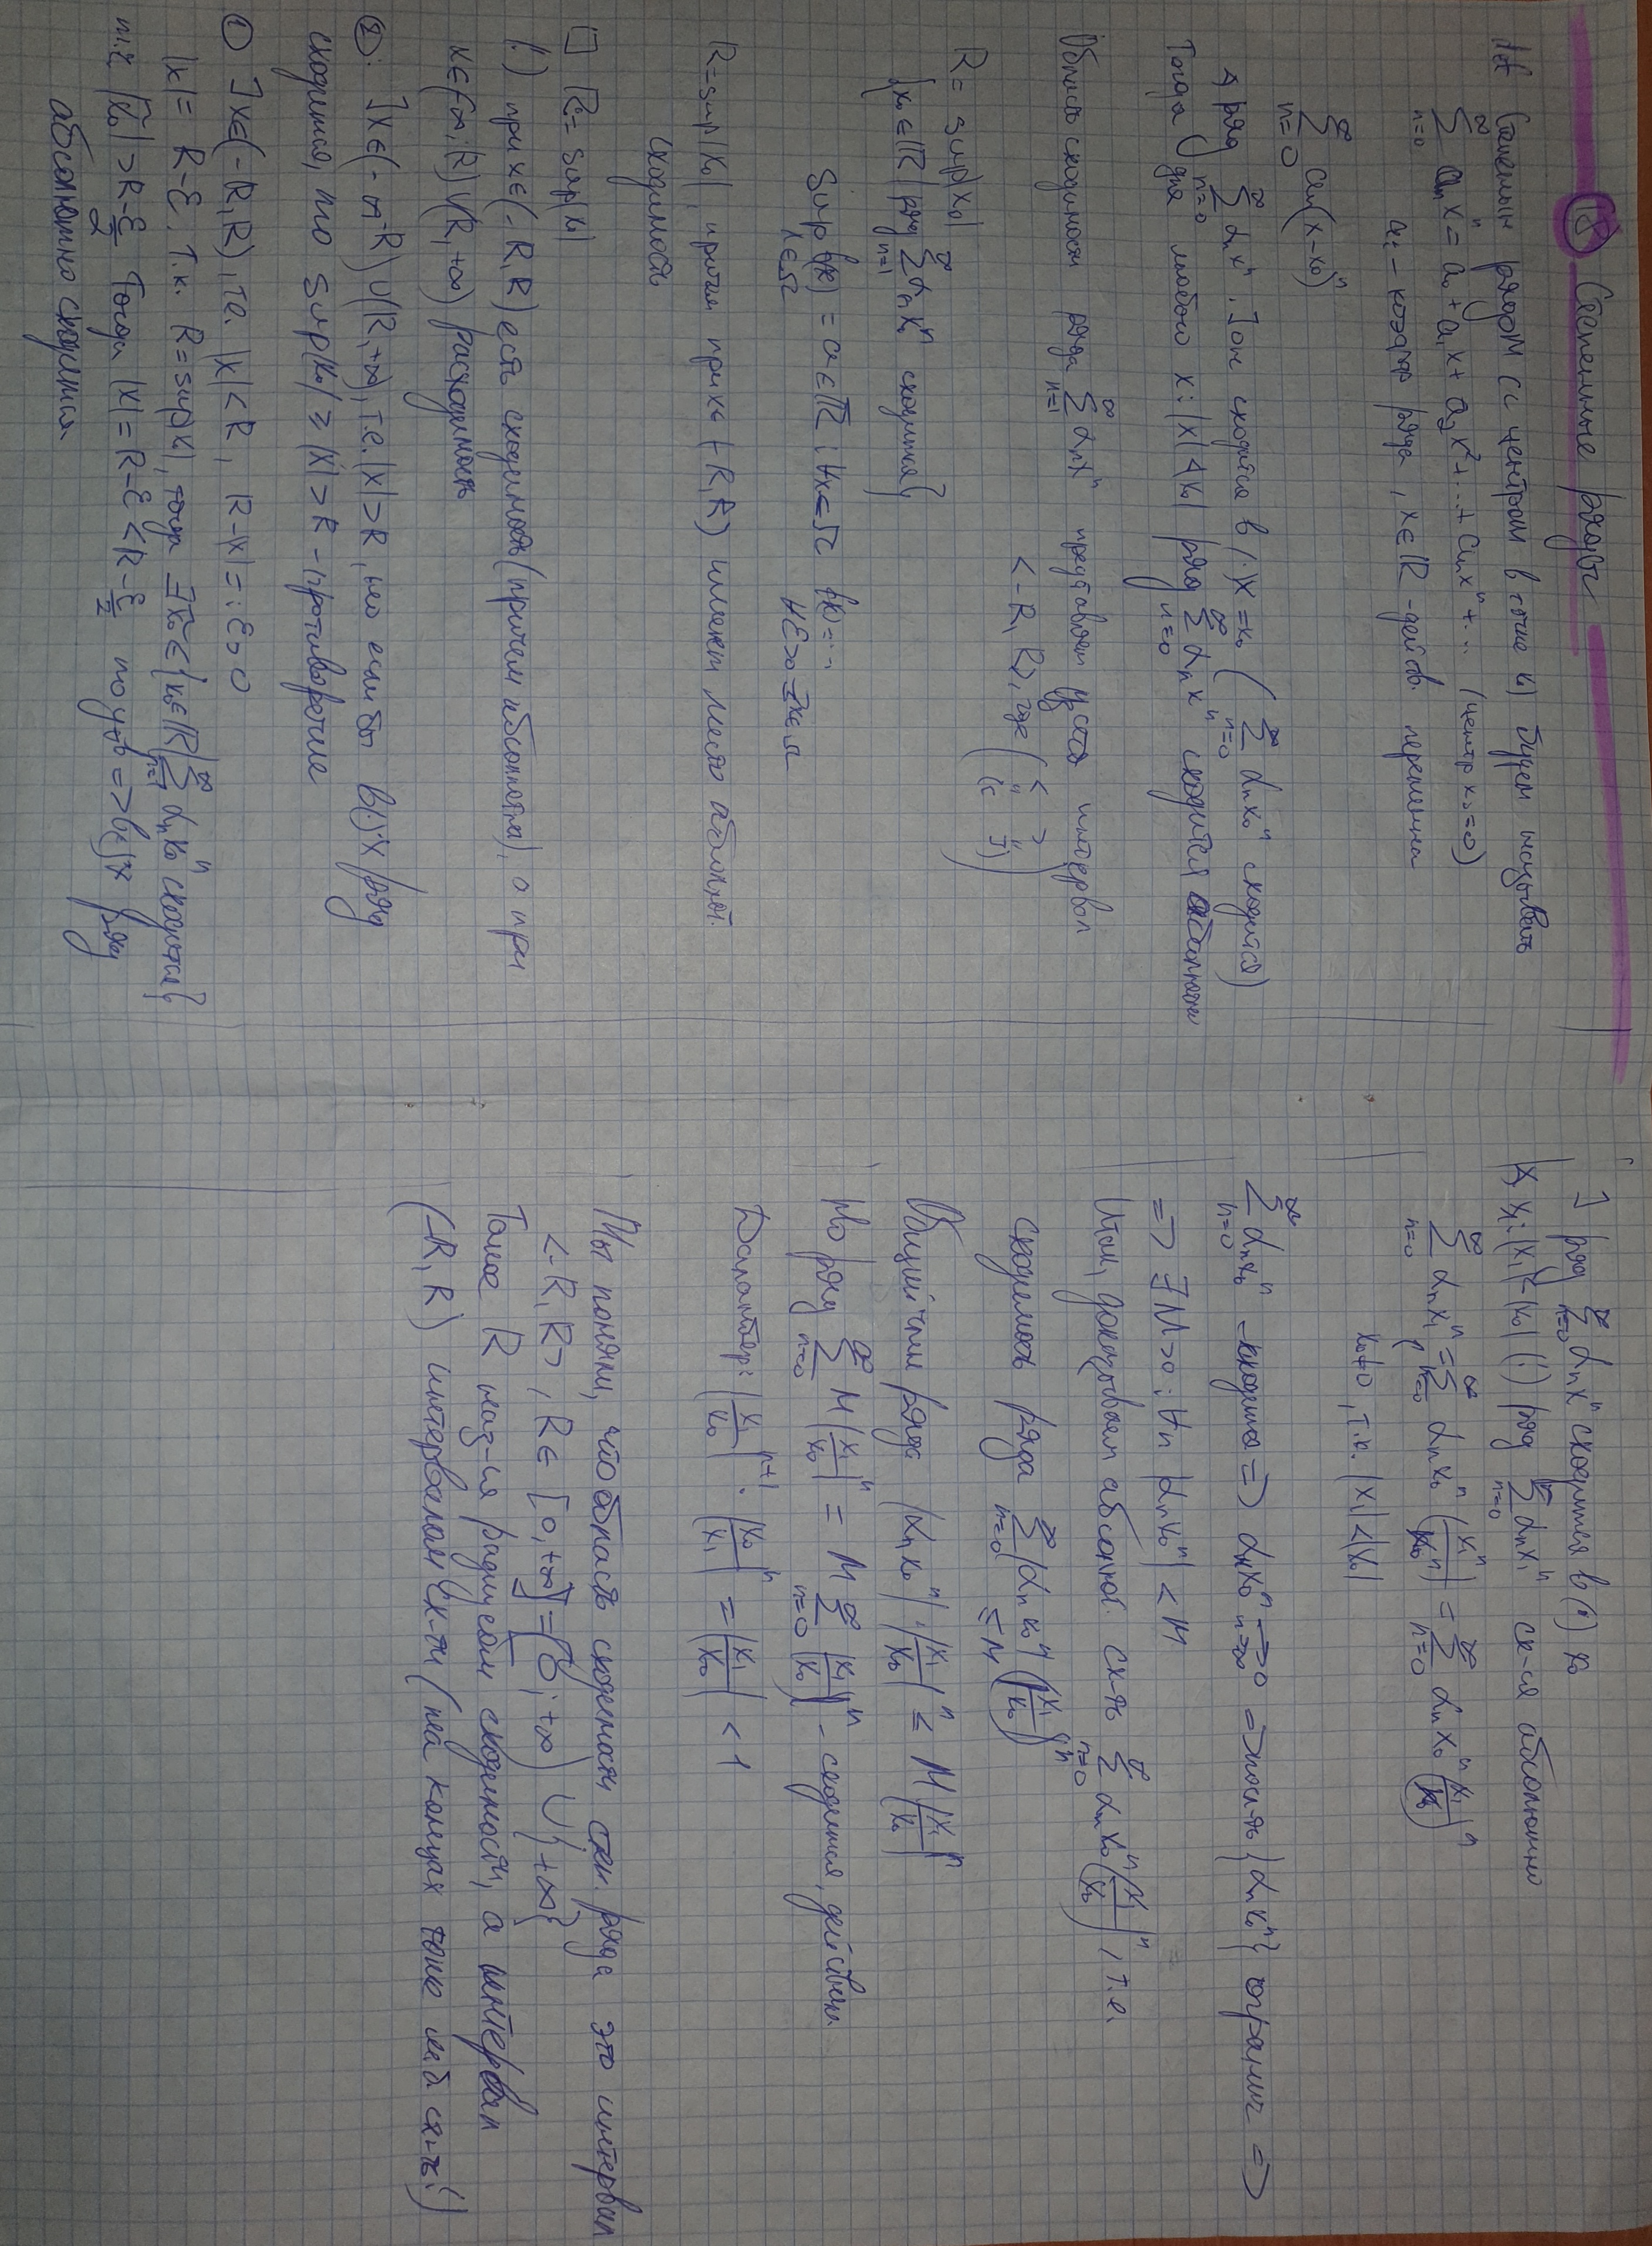 18 Степенные ряды
def Степенным рядом (с центром в точке 0) будем называть
∞∑n=0 aₙxⁿ = a₀ + a₁x + a₂x² + ... + aₙxⁿ + ... (центр x₀=0)
aᵢ - коэфф ряда, x∈ℝ - действ. переменная
∞∑n=0 aₙ(x-x₀)ⁿ
ряд ∞∑n=0 αₙxⁿ. ] он сходится в (·) x=x₀ (∞∑n=0 αₙx₀ⁿ сходится)
Тогда для любого x: |x|<|x₀| ряд ∞∑n=0 αₙxⁿ сходится абсолютно
Область сходимости ряда ∞∑n=1 αₙxⁿ представляет из себя интервал
<-R, R>, где
R = sup|x₀|
{x₀∈ℝ | ряд ∞∑n=1 αₙx₀ⁿ сходится}
sup f(x) = a∈ℝ̄ : ∀x∈Ω
x∈Ω ∀ε>0 ∃x∈Ω
R=sup|x₀|, причём при x∈(-R,R) имеет место абсолют.
сходимость
□ R = sup|x₀|
(·) при x∈(-R,R) есть сходимость (причем абсолютна), а при
x∈(-∞;-R)∪(R,+∞) расходимость
②: ] x∈(-∞-R)∪(R,+∞), т.е. |x|>R, но если бы в (·) x ряд
сходился, то sup|x₀| ≥ |x| > R - противоречие
① ] x∈(-R,R), т.е. |x|<R, R-|x| =: ε>0
|x| = R-ε. Т.к. R=sup|x₀|, тогда ∃x̃₀∈{x₀∈ℝ | ∞∑n=1 αₙx₀ⁿ сходится}
т.ч. |x̃₀|>R-ε/2 Тогда |x|=R-ε<R-ε/2 по утв => в (·) x ряд
абсолютно сходится.
] ряд ∞∑n=0 αₙxⁿ сходится в (·) x₀
x₁: |x₁|<|x₀| (·) ряд ∞∑n=0 αₙx₁ⁿ сх-ся абсолютно
∞∑n=0 αₙx₁ⁿ = ∞∑n=0 αₙx₀ⁿ (x₁ⁿ/x₀ⁿ) = ∞∑n=0 αₙx₀ⁿ (x₁/x₀)ⁿ
x₀≠0, т.к. |x₁|<|x₀|
∞∑n=0 αₙx₀ⁿ - сходится => αₙx₀ⁿ → 0 n→∞ => посл-ть {αₙx₀ⁿ} огранич =>
=> ∃M>0 : ∀n |αₙx₀ⁿ| < M
Итак, доказываем абсолют. сх-ть ∞∑n=0 αₙx₀ⁿ (x₁/x₀)ⁿ, т.е.
сходимость ряда ∞∑n=0 |αₙx₀ⁿ| |x₁/x₀|ⁿ
≤M
Общий член ряда |αₙx₀ⁿ|·|x₁/x₀|ⁿ ≤ M|x₁/x₀|ⁿ
Но ряд ∞∑n=0 M|x₁/x₀|ⁿ = M ∞∑n=0 |x₁/x₀|ⁿ - сходится, действит.
Даламбер: |x₁/x₀|ⁿ⁺¹·|x₀/x₁|ⁿ = |x₁/x₀| < 1
Мы поняли, что область сходимости степ. ряда это интервал
<-R, R>, R∈[0,+∞] = [0;+∞)∪{+∞}
Такое R наз-ся радиусом сходимости, а интервал
(-R,R) интервалом сх-ти (на концах тоже мб сх-ть!)